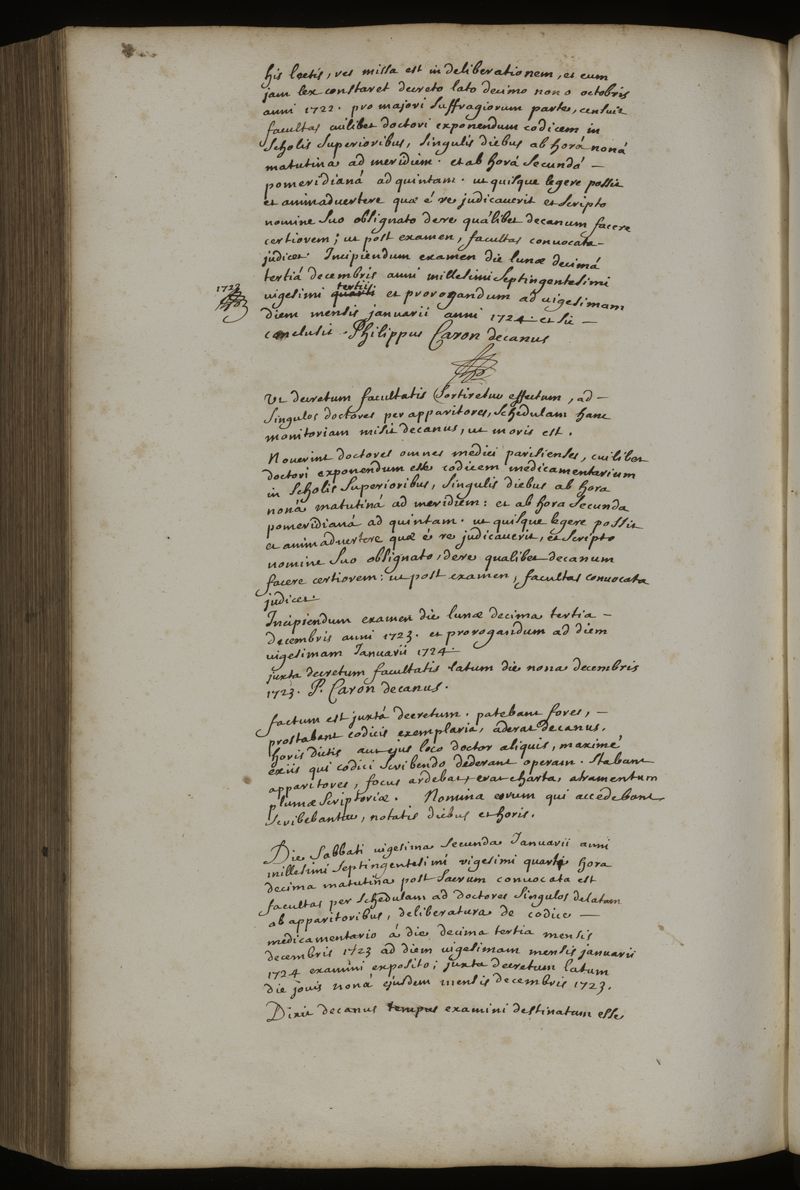 his lectis, res missa est in deliberationem, et cum
jam lex constaret decreto lato decimo nono octobris
anni 1722. pro majori suffragiorum parte, censuit
facultas cuilibet doctori exponendum codicem in
Scholis superioribus, singulis diebus ab horâ nonâ
matutinâ ad meridiem. et ab horâ secundâ —
pomeridianâ ad quintam. ut quisque legere possit
et animadvertere quæ é re judicaverit et scripto
nomine suo obsignato dere qualibet decanum facere
certiorem; ut post examen, facultas convocata
judicet. Incipiendum examen die lunæ decimâ
tertiâ decembris anni millesimi septingentesimi
1723
vigesimi quarti tertii et prorogandum ad vigesimam
diem mensis januarii anni 1724 et sic —
conclusit. Philippus Caron decanus
Ut decretum facultatis sortiretur effectum, ad —
singulos doctores per apparitores, schedulam hanc
monitoriam misit decanus, ut moris est.
Noverint doctores omnes medici parisienses, cuilibet
doctori exponendum esse codicem medicamentarium
in scholis superioribus, singulis diebus ab hora
nonâ matutinâ ad meridiem: et ab hora secunda
pomeridianâ ad quintam. ut quisque legere possit
et animadvertere quæ é re judicaverit, et scripto
nomine suo obsignato, dere qualibet decanum
facere certiorem: ut post examen, facultas convocata
judicet.
Incipiendum examen die lunæ decima tertia —
decembris anni 1723. et prorogandum ad diem
vigesimam Januarii 1724
juxta decretum facultatis latum die nona decembris
1723. P. Caron decanus.
factum est juxtá decretum. patebant fores, —
prostabant codicis exemplaria, aderat decanus,
horis dictis aut ejus loco doctor aliquis, maximé
exiis qui codici scribendo dederant operam. stabant
apparitores, focus ardebat, erat charta, atramentum
plumæ scriptoriæ. Nomina eorum qui accedebant
scribebantur, notatis diebus et horis.
Die Sabbati vigesima secunda Januarii anni
millesimi septingentesimi vigesimi quarti hora
decima matutina post sacrum convocata est
facultas per schedulam ad doctores singulos delatam
ab apparitoribus, deliberatura de codice —
medicamentario á die decima tertia mensis
decembris 1723 ad diem vigesimam mensis januarii
1724 examini exposito; juxta decretum latum
die jovis nonâ ejusdem mensis decembris 1723.
Dixit decanus tempus examini destinatum esse